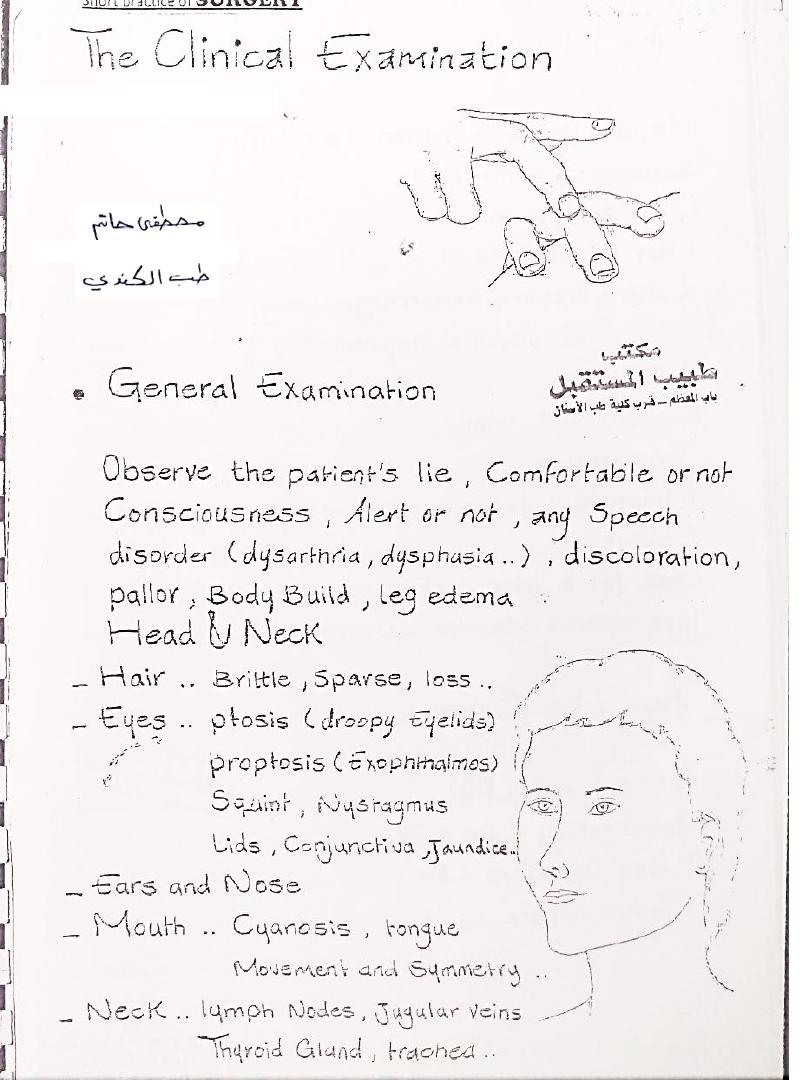 Short practice of SURGERY
The Clinical Examination
مصطفى حاتم
طب الكندي
مكتب
طبيب المستقبل
باب المعظم - قرب كلية طب الأسنان
• General Examination
Observe the patient's lie , Comfortable or not
Consciousness , Alert or not , any Speech
disorder (dysarthria , dysphasia ..) , discoloration,
pallor , Body Build , leg edema
Head & Neck
- Hair .. Brittle , Sparse , loss ..
- Eyes .. ptosis (droopy Eyelids)
proptosis (Exophthalmos)
Squint , Nystagmus
Lids , Conjunctiva , Jaundice..
- Ears and Nose
- Mouth .. Cyanosis , tongue
Movement and Symmetry ..
- Neck .. lymph Nodes , Jugular Veins
Thyroid Gland , trachea ..